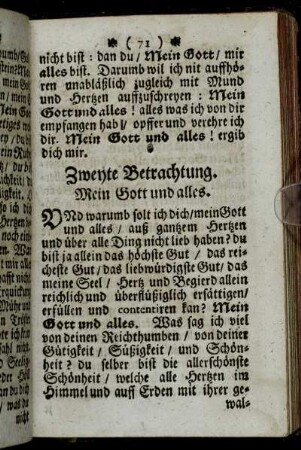 ( 71 )
nicht bist : dan du / Mein Gott / mir
alles bist. Darumb wil ich nit auffhö-
ren unabläßlich zugleich mit Mund
und Hertzen auffzuschreyen : Mein
Gott und alles ! alles was ich von dir
empfangen hab / opffer und verehre ich
dir. Mein Gott und alles ! ergib
dich mir.
Zweyte Betrachtung.
Mein Gott und alles.
UNd warumb solt ich dich / mein Gott
und alles / auß gantzem Hertzen
und über alle Ding nicht lieb haben? du
bist ja allein das höchste Gut / das rei-
cheste Gut / das liebwürdigste Gut / das
meine Seel / Hertz und Begierd allein
reichlich und überflüßiglich ersättigen /
erfüllen und contentiren kan? Mein
Gott und alles. Was sag ich viel
von deinen Reichthumben / von deiner
Gütigkeit / Süßigkeit / und Schön-
heit ? du selber bist die allerschönste
Schönheit / welche alle Hertzen im
Himmel und auff Erden mit ihrer ge-
wal-